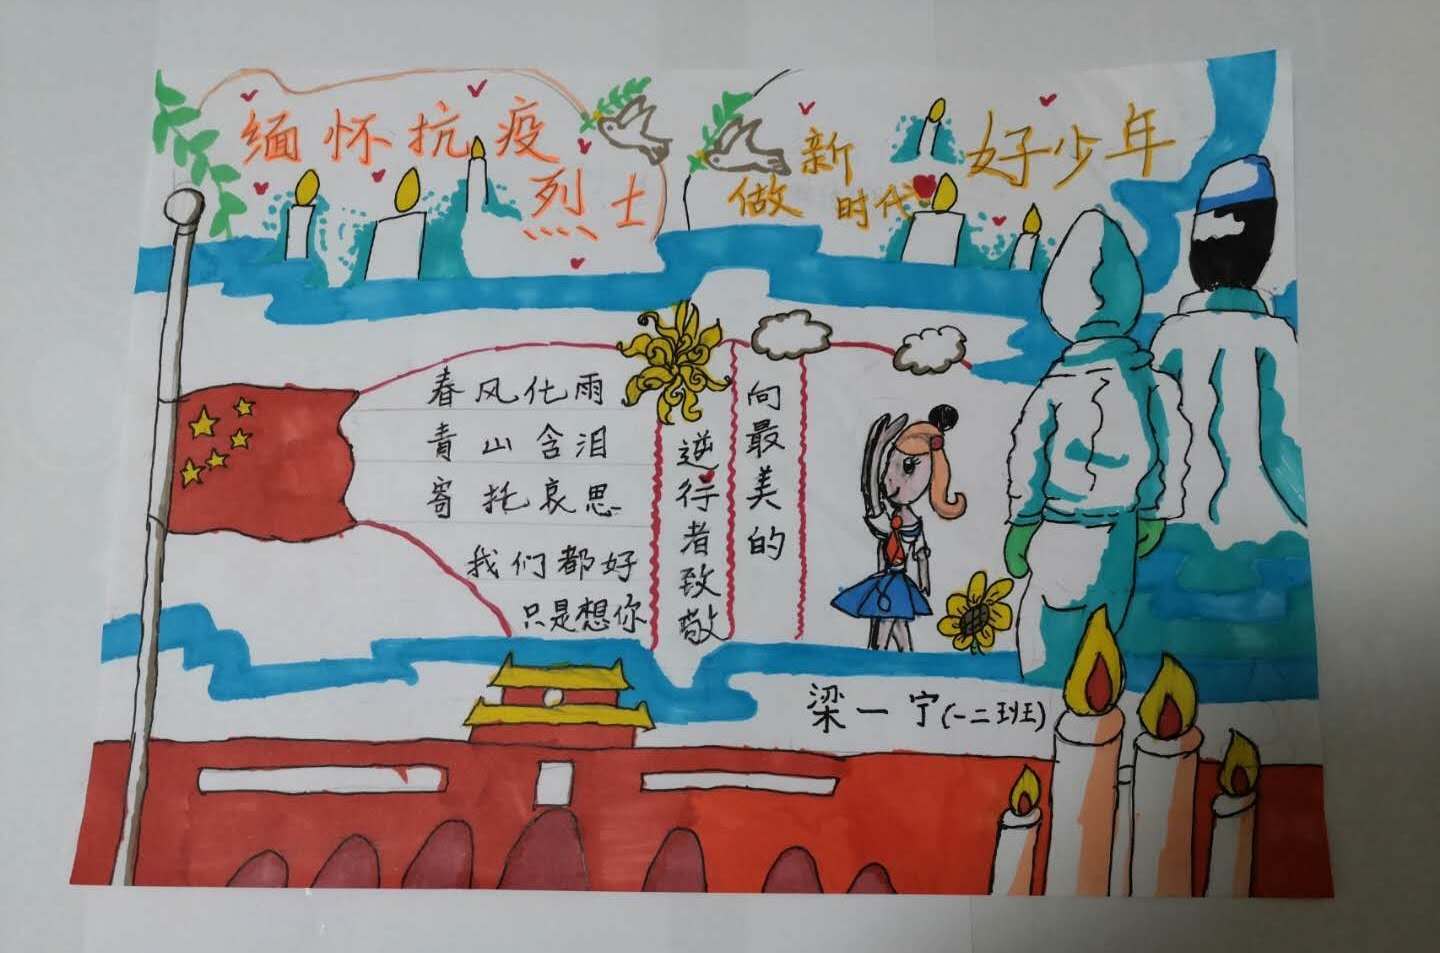 缅怀抗疫
烈士
做新时代好少年
春风化雨
青山含泪
寄托哀思
我们都好
只是想你
向最美的
逆行者致敬
梁一宁(一二班)